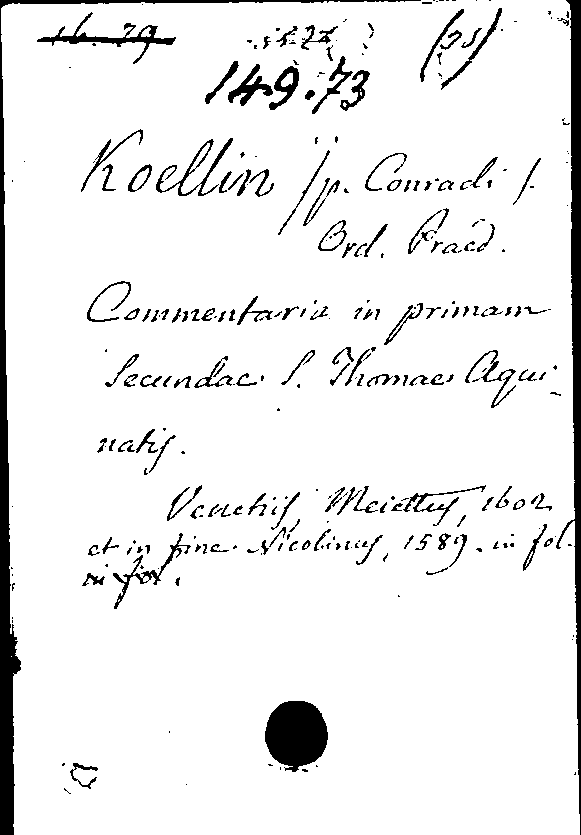 16.79 (25)
149.73
Koellin /p. Conradi/.
Ord. Praed.
Commentaria in primam
Secundae S. Thomae Aqui-
natis.
Venetiis, Meiettus, 1602
et in fine Nicolinus, 1589. in fol.
in fol.